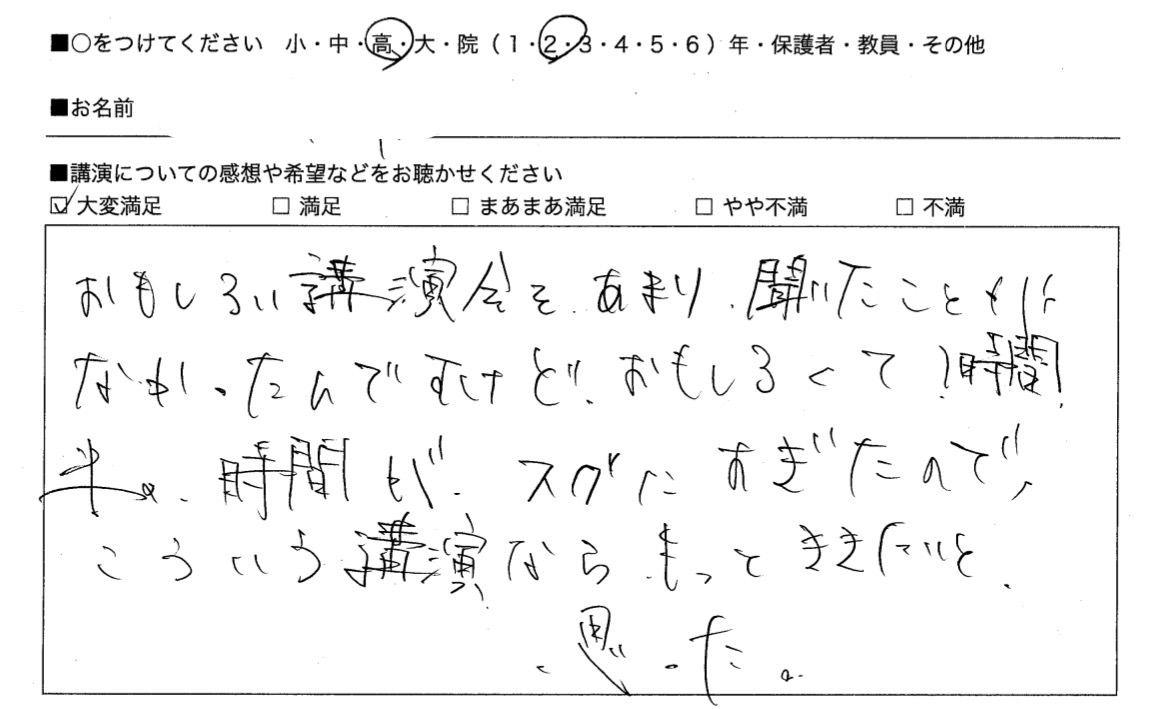 ■○をつけてください 小・中・高・大・院(1・2・3・4・5・6)年・保護者・教員・その他
■お名前
■講演についての感想や希望などをお聴かせください
☑大変満足 □ 満足 □ まあまあ満足 □ やや不満 □ 不満
おもしろい講演会を、あまり、聞いたことが
なかったんですけど、おもしろくて1時間
半の、時間が、スグにすぎたので、
こういう講演ならもっとききたいと、
思った。